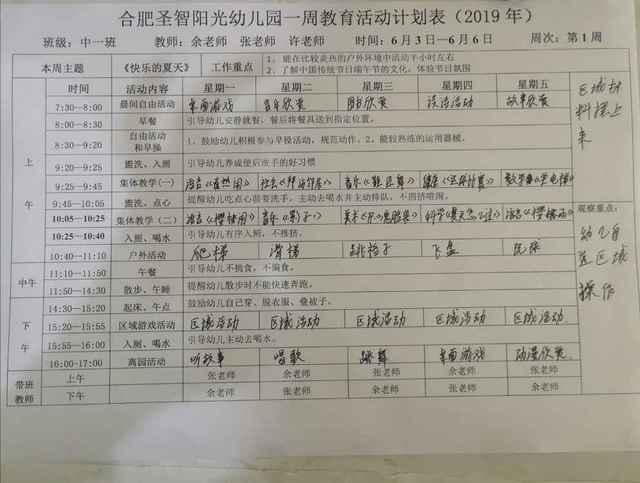 合肥圣智阳光幼儿园一周教育活动计划表（2019年）
班级：中一班 教师：余老师 张老师 许老师 时间：6月3日—6月6日 周次：第1周
本周主题 《快乐的夏天》 工作重点 1、能在比较炎热的户外环境中活动半小时左右
2、了解中国传统节日端午节的文化，体验节日氛围
时间 活动内容 星期一 星期二 星期三 星期四 星期五
上午
7:30—8:00 晨间自由活动 桌面游戏 音乐欣赏 谈话活动 故事欣赏
8:00—8:30 早餐 引导幼儿安静就餐，餐后将餐具送到指定位置。
8:30—9:20 自由活动和早操 1、鼓励幼儿积极参与早操活动，规范动作。2、能较熟练的运用器械。
9:20—9:25 盥洗、入厕 引导幼儿养成便后洗手的好习惯
9:25—9:45 集体教学（一）
9:45—10:05 盥洗、点心 提醒幼儿吃点心前要洗手，主动去喝水并主动排队，不拥挤喧闹。
10:05—10:25 集体教学（二）
10:25—10:40 入厕、喝水 引导幼儿有序入厕，不推挤。
10:40—11:10 户外活动 爬梯 滑梯 跳格子 飞盘
中午
11:10—11:50 午餐 引导幼儿不挑食，不偏食。
11:50—12:30 散步、午睡 提醒幼儿散步时不能快速奔跑。
下午
14:30—15:20 起床、午点 鼓励幼儿自己穿、脱衣服、叠被子。
15:20—15:55 区域游戏活动 区域活动 区域活动 区域活动 区域活动 区域活动
15:55—16:00 入厕、喝水 引导幼儿主动去喝水。
16:00-17:00 离园活动 听故事 唱歌 跳舞 桌面游戏 动漫欣赏
带班教师
上午 张老师 余老师 张老师 余老师 张老师
下午 余老师 张老师 余老师 张老师 余老师
区域材料投上来
观察重点：
幼儿自选区域操作